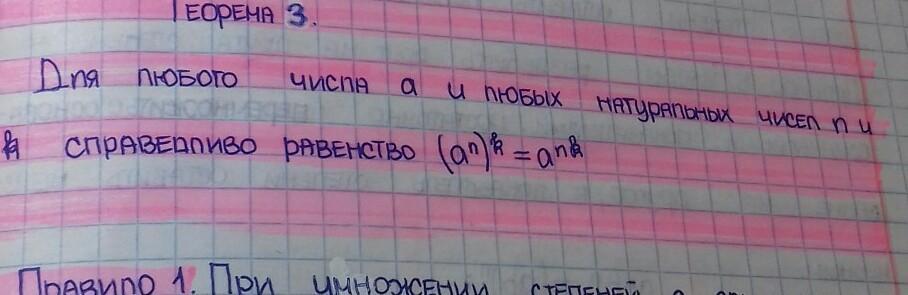 Теорема 3.
Для любого числа a и любых натуральных чисел n и
k справедливо равенство (aⁿ)ᵏ = aⁿᵏ
Правило 1. При умножении степеней